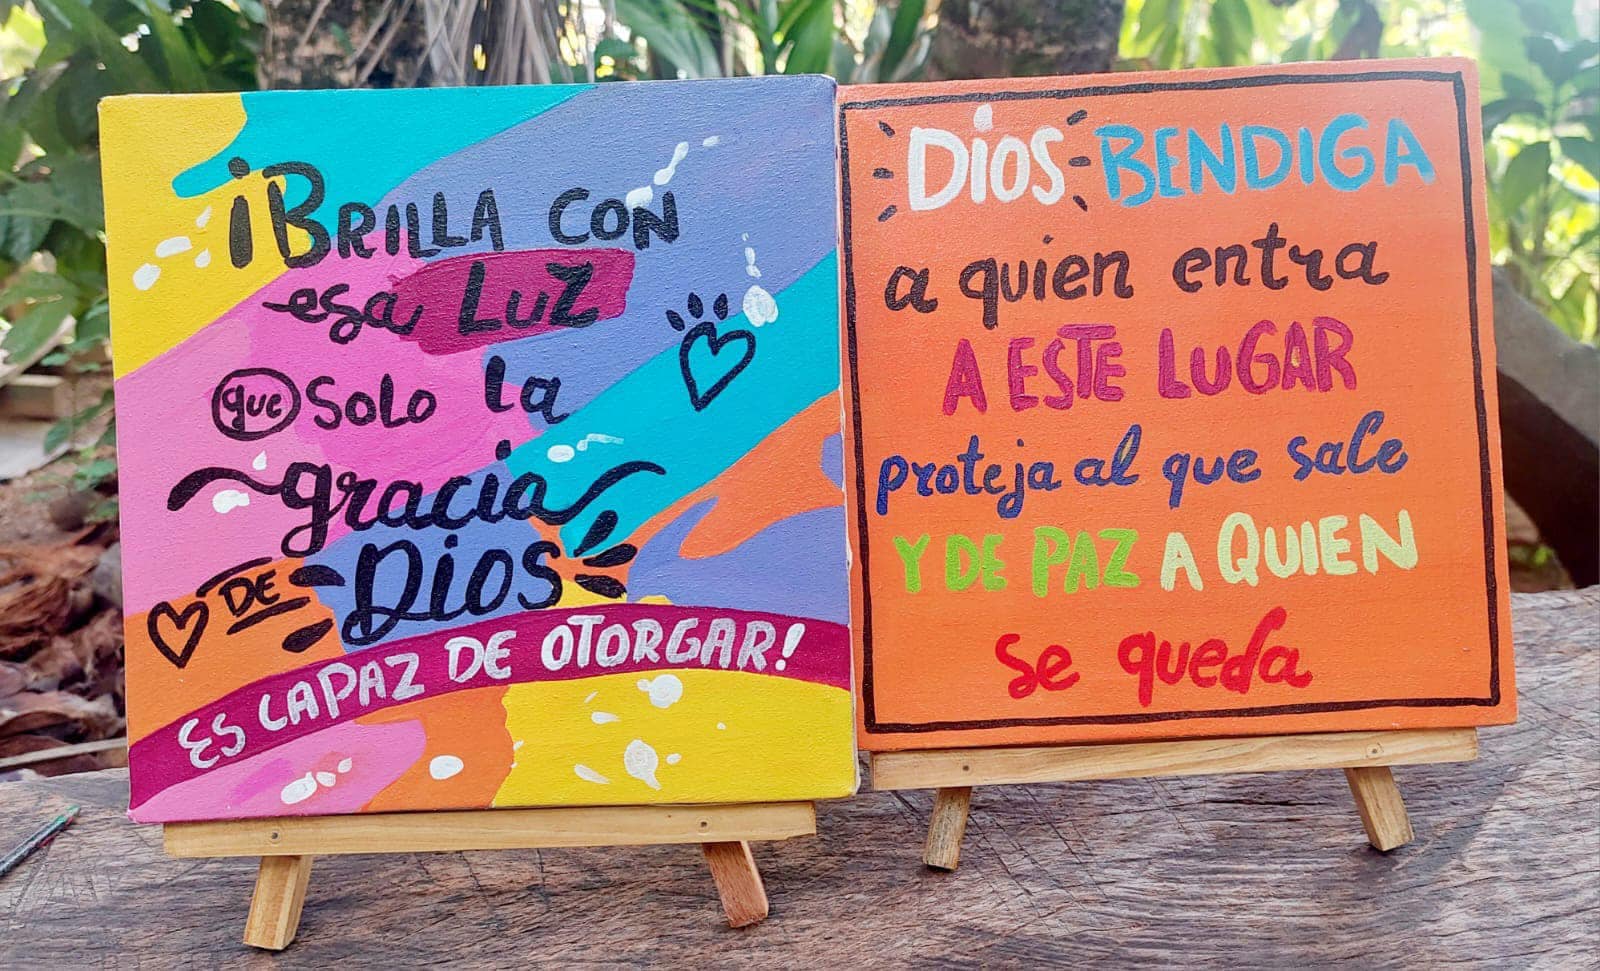 ¡BRILLA CON
esa LUZ
que SOLO la
gracia
DE DIOS
ES CAPAZ DE OTORGAR!
DIOS BENDIGA
a quien entra
A ESTE LUGAR
proteja al que sale
Y DE PAZ A QUIEN
se queda